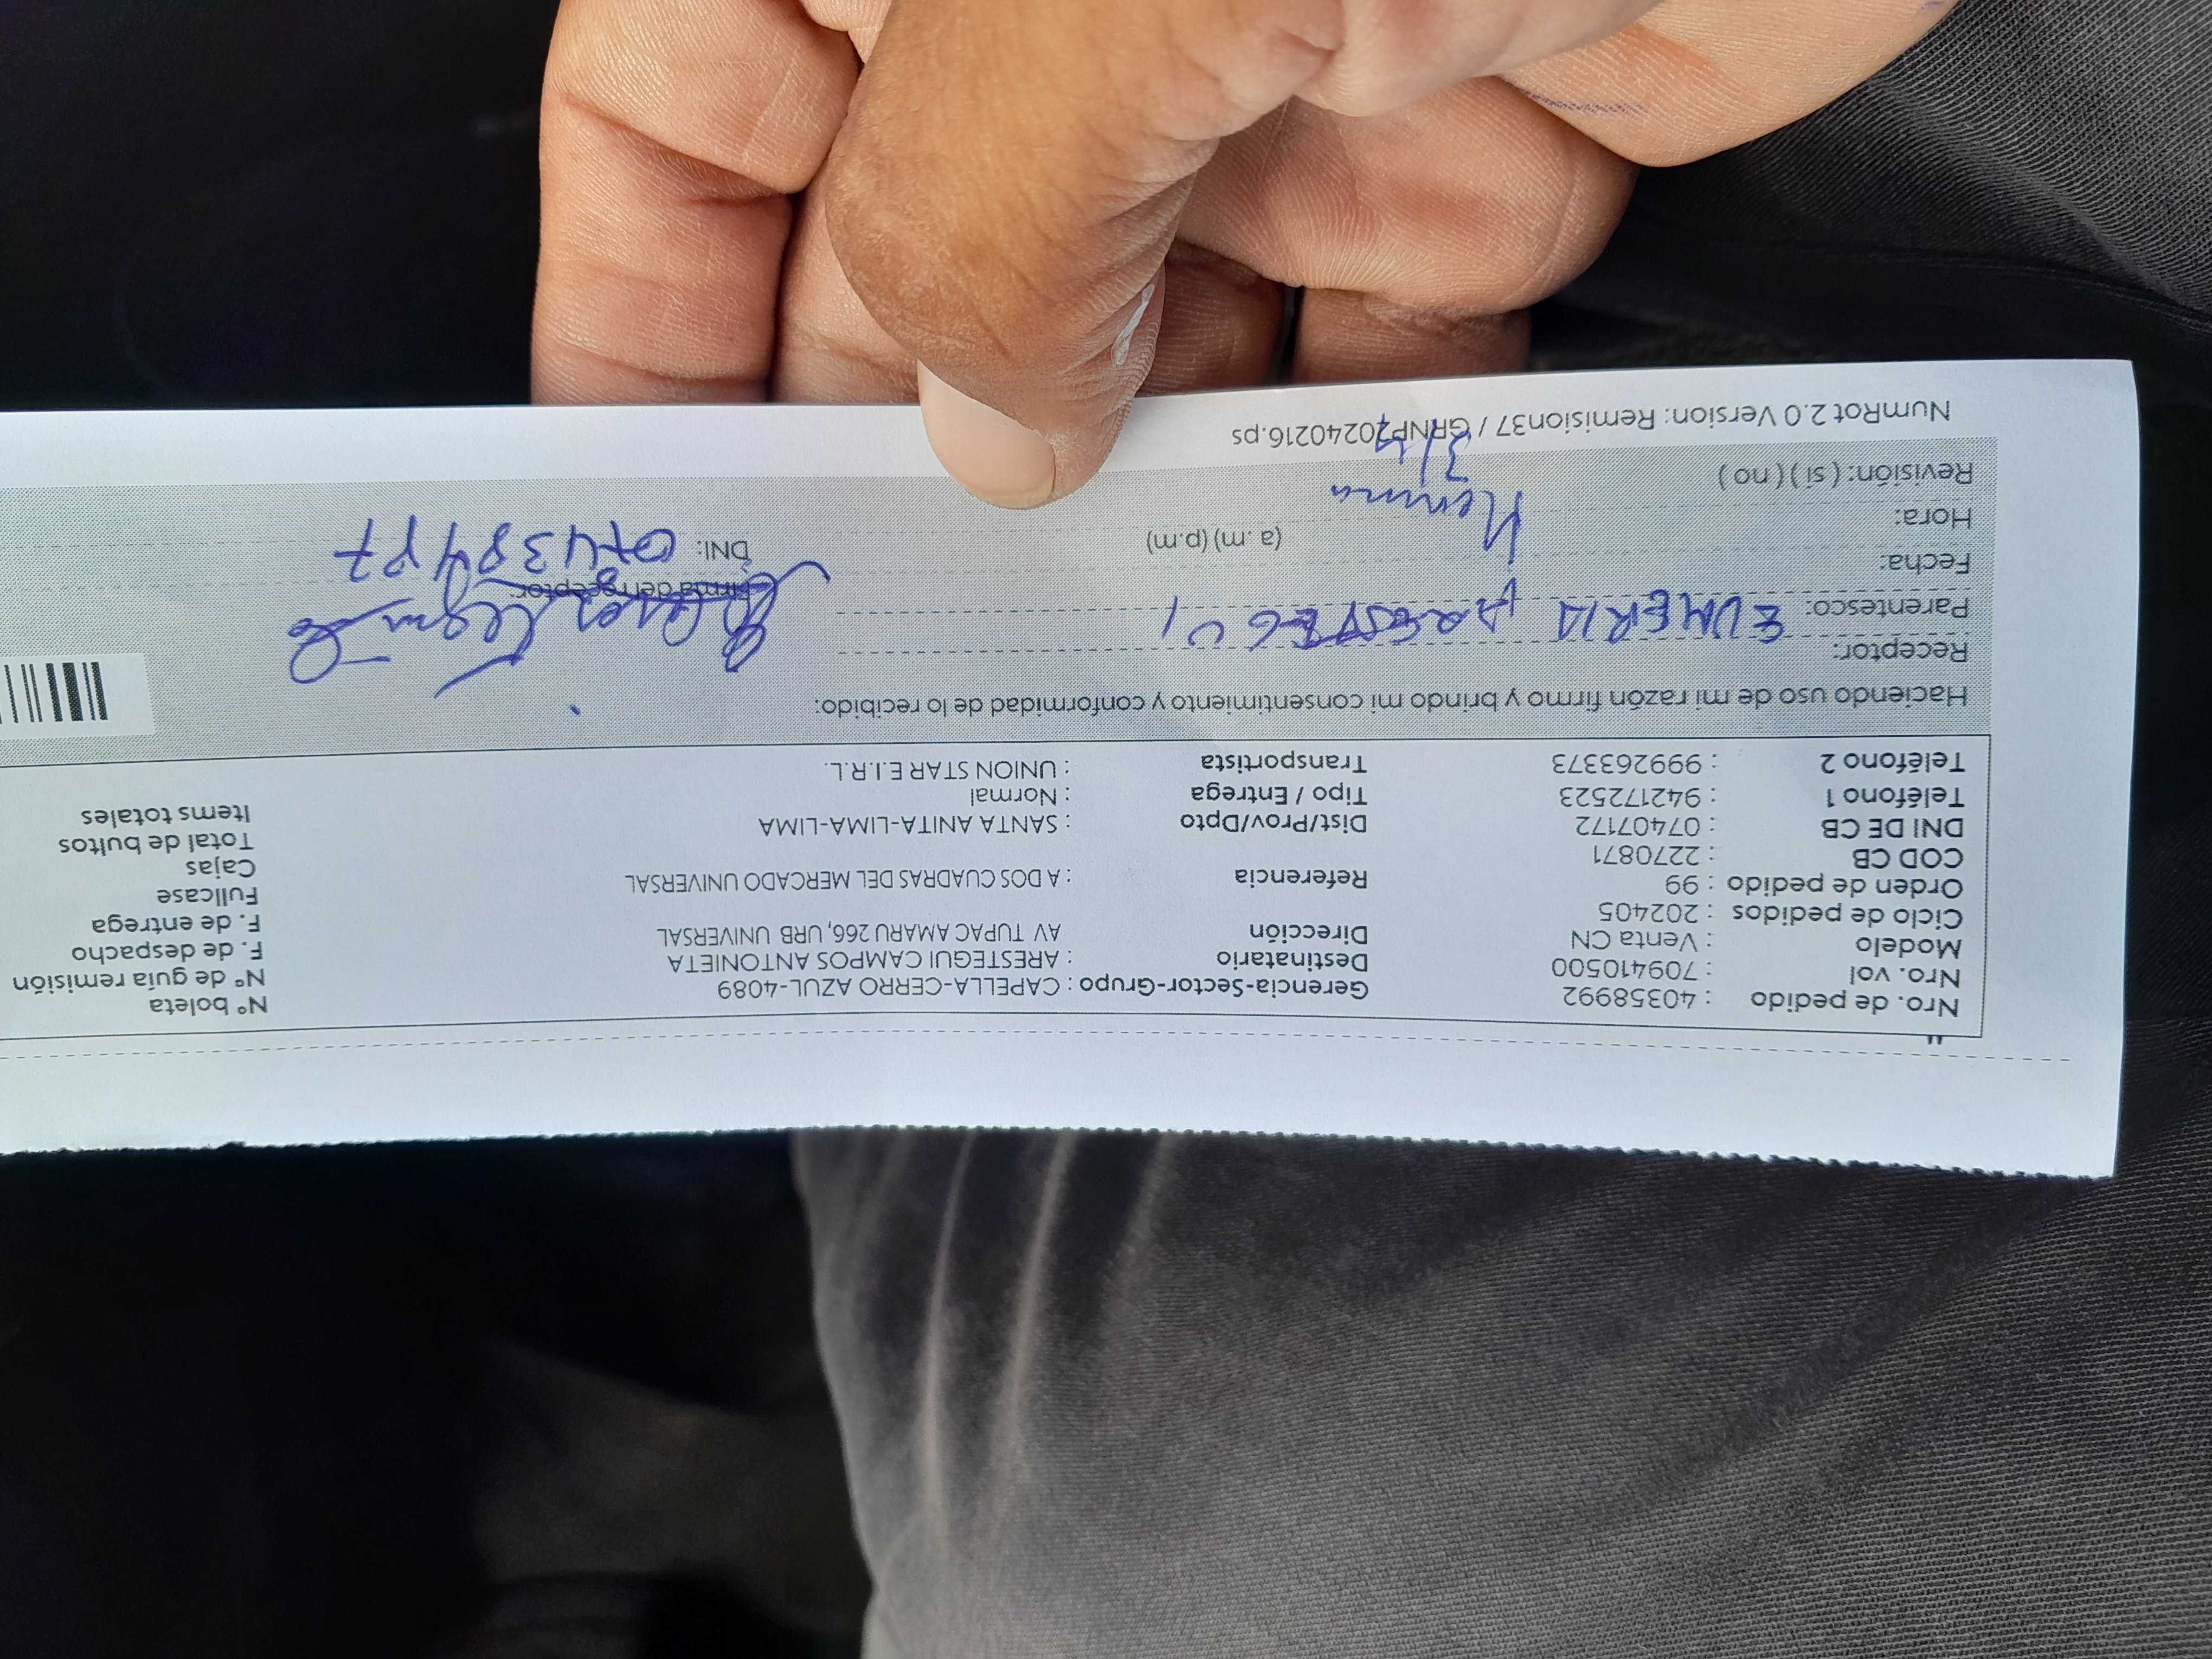 Nro. de pedido : 40358992 Gerencia-Sector-Grupo : CAPELLA-CERRO AZUL-4089 N° boleta
Nro. vol : 709410500 Destinatario : ARESTEGUI CAMPOS ANTONIETA N° de guía remisión
Modelo : Venta CN Dirección AV TUPAC AMARU 266, URB UNIVERSAL F. de despacho
Ciclo de pedidos : 202405 F. de entrega
Orden de pedido : 99 Referencia : A DOS CUADRAS DEL MERCADO UNIVERSAL Fullcase
COD CB : 2270871 Cajas
DNI DE CB : 07407172 Dist/Prov/Dpto : SANTA ANITA-LIMA-LIMA Total de bultos
Teléfono 1 : 942172523 Tipo / Entrega : Normal Items totales
Teléfono 2 : 999263373 Transportista : UNION STAR E.I.R.L.
Haciendo uso de mi razón firmo y brindo mi consentimiento y conformidad de lo recibido:
Receptor:
Parentesco: EUMERIA ARESTEGUI
Fecha: Firma del receptor:
Hora: (a .m) (p.m) DNI:
Revisión: ( si ) ( no )
NumRot 2.0 Version: Remision37 / GRNP20240216.ps